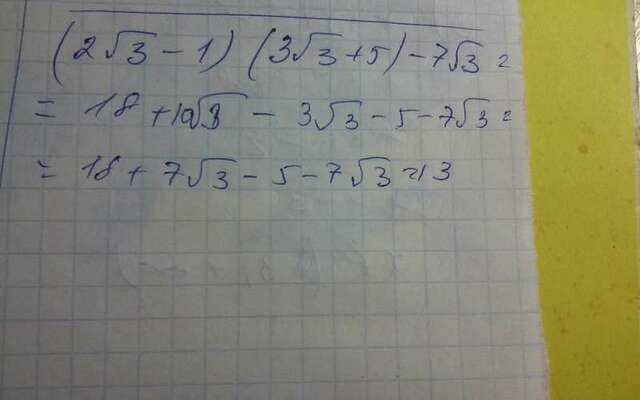 (2√3 - 1)(3√3 + 5) - 7√3 =
= 18 + 10√3 - 3√3 - 5 - 7√3 =
= 18 + 7√3 - 5 - 7√3 = 13